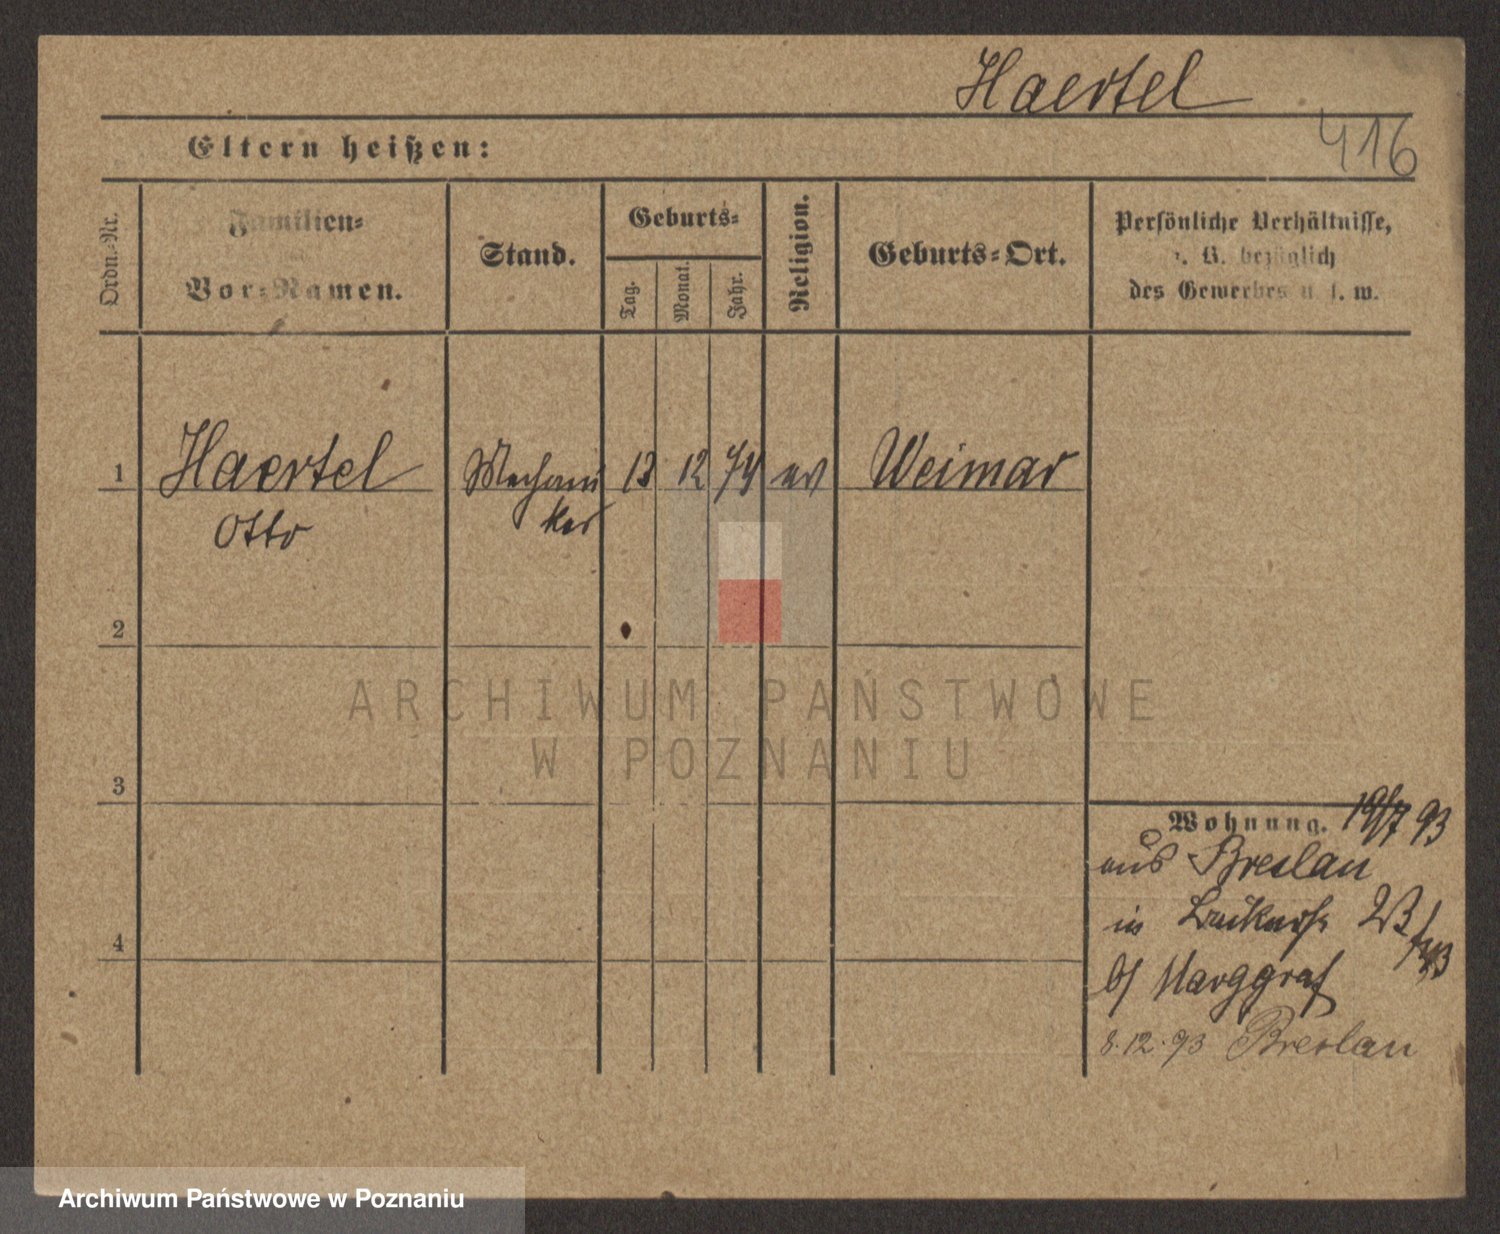 Haertel
416
Eltern heißen:
Ordn.-Nr.
Familien-
Vor-Namen.
Stand.
Geburts-
Tag.
Monat.
Jahr.
Religion.
Geburts-Ort.
Persönliche Verhältnisse,
z. B. bezüglich
des Gewerbes u. s. w.
1 Haertel Mechani 12 74 ev Weimar
Otto ker
2
3
4
Wohnung. 19/7 93
aus Breslau
in
b/ Marggraf
8.12.93 Breslau
ARCHIWUM PAŃSTWOWE
W POZNANIU
Archiwum Państwowe w Poznaniu